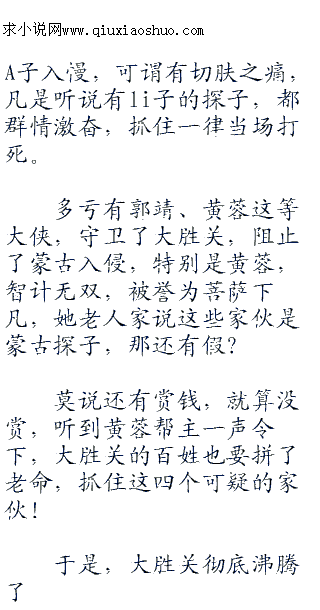 求小说网www.qiuxiaoshuo.com
A子入漫，可谓有切肤之痛，
凡是听说有li子的探子，都
群情激奋，抓住一律当场打
死。
多亏有郭靖、黄蓉这等
大侠，守卫了大胜关，阻止
了蒙古入侵，特别是黄蓉，
智计无双，被誉为菩萨下
凡，她老人家说这些家伙是
蒙古探子，那还有假？
莫说还有赏钱，就算没
赏，听到黄蓉帮主一声令
下，大胜关的百姓也要拼了
老命，抓住这四个可疑的家
伙！
于是，大胜关彻底沸腾
了